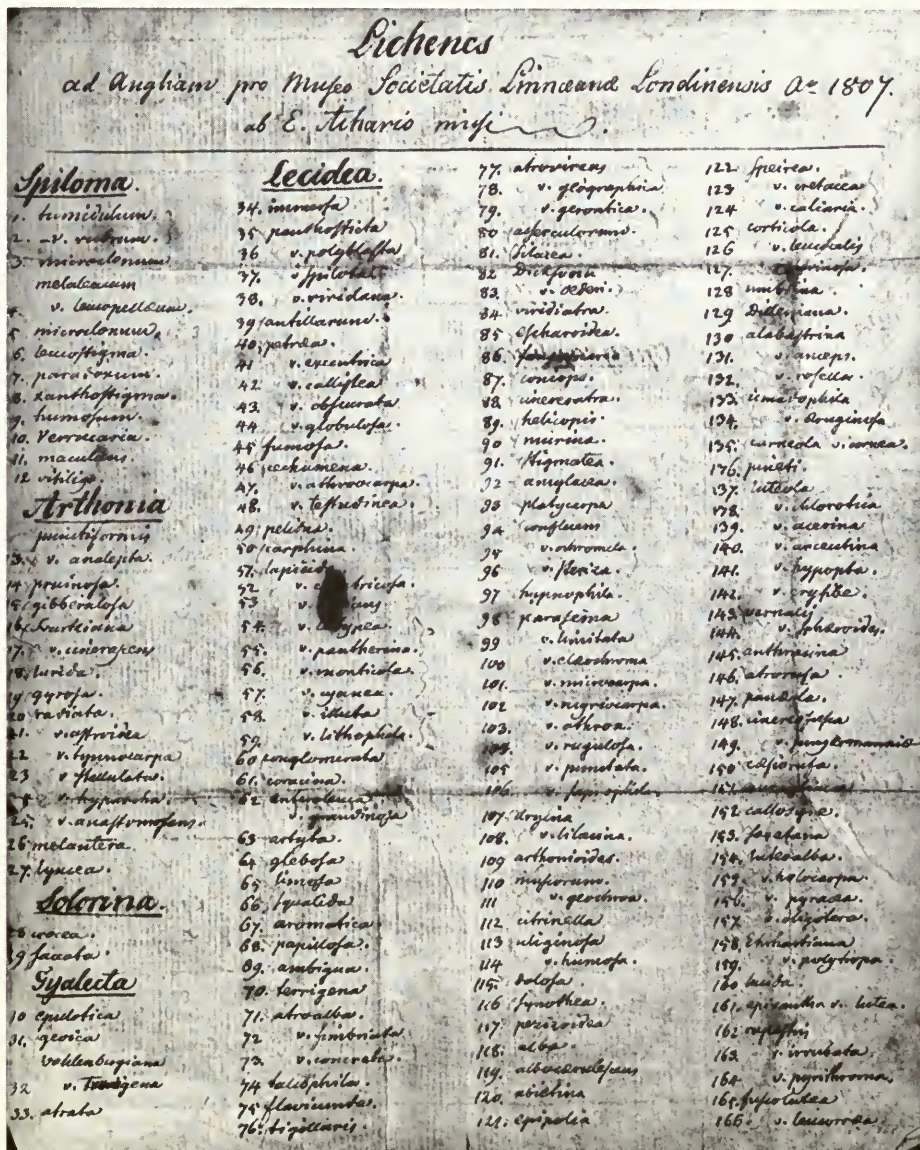 Lichenes
ad Angliam pro Museo Societatis Linnæanæ Londinensis Ao 1807.
ab E. Achario missi.
Spiloma.
1. tumidulum.
2. v. rubrum.
3. microclonum
melaleucum
4. v. leucopelleum.
5 microclonum.
6. leucostigma.
7. paradoxum.
8. xanthostigma.
9. fumosum.
10. Verrucaria.
11. maculans
12 vitiligo.
Arthonia
punctiformis
13. v. analepta.
14. pruinosa.
15. gibberulosa
16. Swartziana
17. v. cinerascens
18. lurida.
19 gyrosa.
20 radiata.
21. v. astroidea
22 v. tynnocarpa
23 v. stellulata.
24 v. hyparcha.
25. v. anastomosans.
26 melantera.
27. lyncea.
Solorina.
28 crocea.
29 saccata.
Gyalecta
30 epulotica
31. geoica
Wahlenbergiana
32 v. gena
33. atrata
Lecidea.
34. immersa.
35 panthosticta
36 v. polyblasta
37. v. spilota
38. v. viridans.
39 antillarum.
40. petræa.
41 v. excentrica
42 v. callistea
43. v. obscurata
44 v. globulosa
45 fumosa.
46 pechumena.
47. v. athrocarpa.
48. v. testudinea.
49. pelidna.
50 parphina.
51. lapicida
52 v. tricosa.
53 v. ans
54. v. typea.
55. v. pantherina.
56. v. monticola.
57. v. cyanea.
58. v. illuta
59. v. lithophila.
60 conglomerata
61. coracina.
62 enteroleuca
v. grandinosa
63 artyta.
64 glebosa
65 limosa
66 squalida
67. aromatica.
68. papillosa.
69. ambigua.
70. terrigena
71. atroalba.
72 v. fimbriata
73. v. concreta.
74 talcophila.
75 flavicunda.
76. tigillaris.
77. atrovirens
78. v. geographica
79. v. gerontica.
80 aserculorum.
81. silacea.
82 Dicksonii
83 v. Oederi.
84 viridiatra.
85 escharoidea.
86.
87. coniops.
88 cinereoatra.
89. helicopis
90 murina.
91. stigmatea.
92 amylacea.
93 platycarpa
94 confluens
95 v. ochromela.
96 v. steriza.
97 hypnophila.
98 parasema
99 v. limitata
100 v. elaochroma
101. v. microcarpa.
102 v. nigrocarpa.
103. v. athroa.
104. v. rugulosa.
105 v. punctata.
106. v. saprophila.
107. dryina
108. v. lilacina.
109 arthonioides.
110 muscorum.
111 v. geochroa.
112 citrinella
113 uliginosa
114 v. humosa.
115. dolosa.
116 synothea.
117. pezizoidea
118. alba.
119. albocærulescens
120. abietina
121. epipolia
122. speirea.
123 v. cretacea
124 v. calcaria.
125 corticola.
126 v. leucitalis
127.
128 umbrina.
129 Dilleniana.
130 alabastrina
131. v. anceps.
132. v. rosella.
133. icmadophila
134. v. æruginosa
135. carneola v. cornea.
136. pineti.
137. luteola
138. v. chlorotica
139. v. acerina
140. v. arceutina
141. v. hypopta.
142. v. erysibe.
143. vernalis
144. v. sphæroides.
145. anthracina
146. atrorufa.
147. pandola.
148. cinereofusca
149. v. jungermanniæ
150 cæsiorufa.
151
152 callosyne.
153. fagetana
154. luteoalba.
155. v. holocarpa.
156. v. pyracea
157. v. oligotera.
158. Ehrhartiana
159. v. polytropa.
160. lucida.
161. epixantha v. lutea.
162 rupestris
163. v. irrubata.
164. v. pyrithroma.
165. fuscolutea
166. v. leucorræa